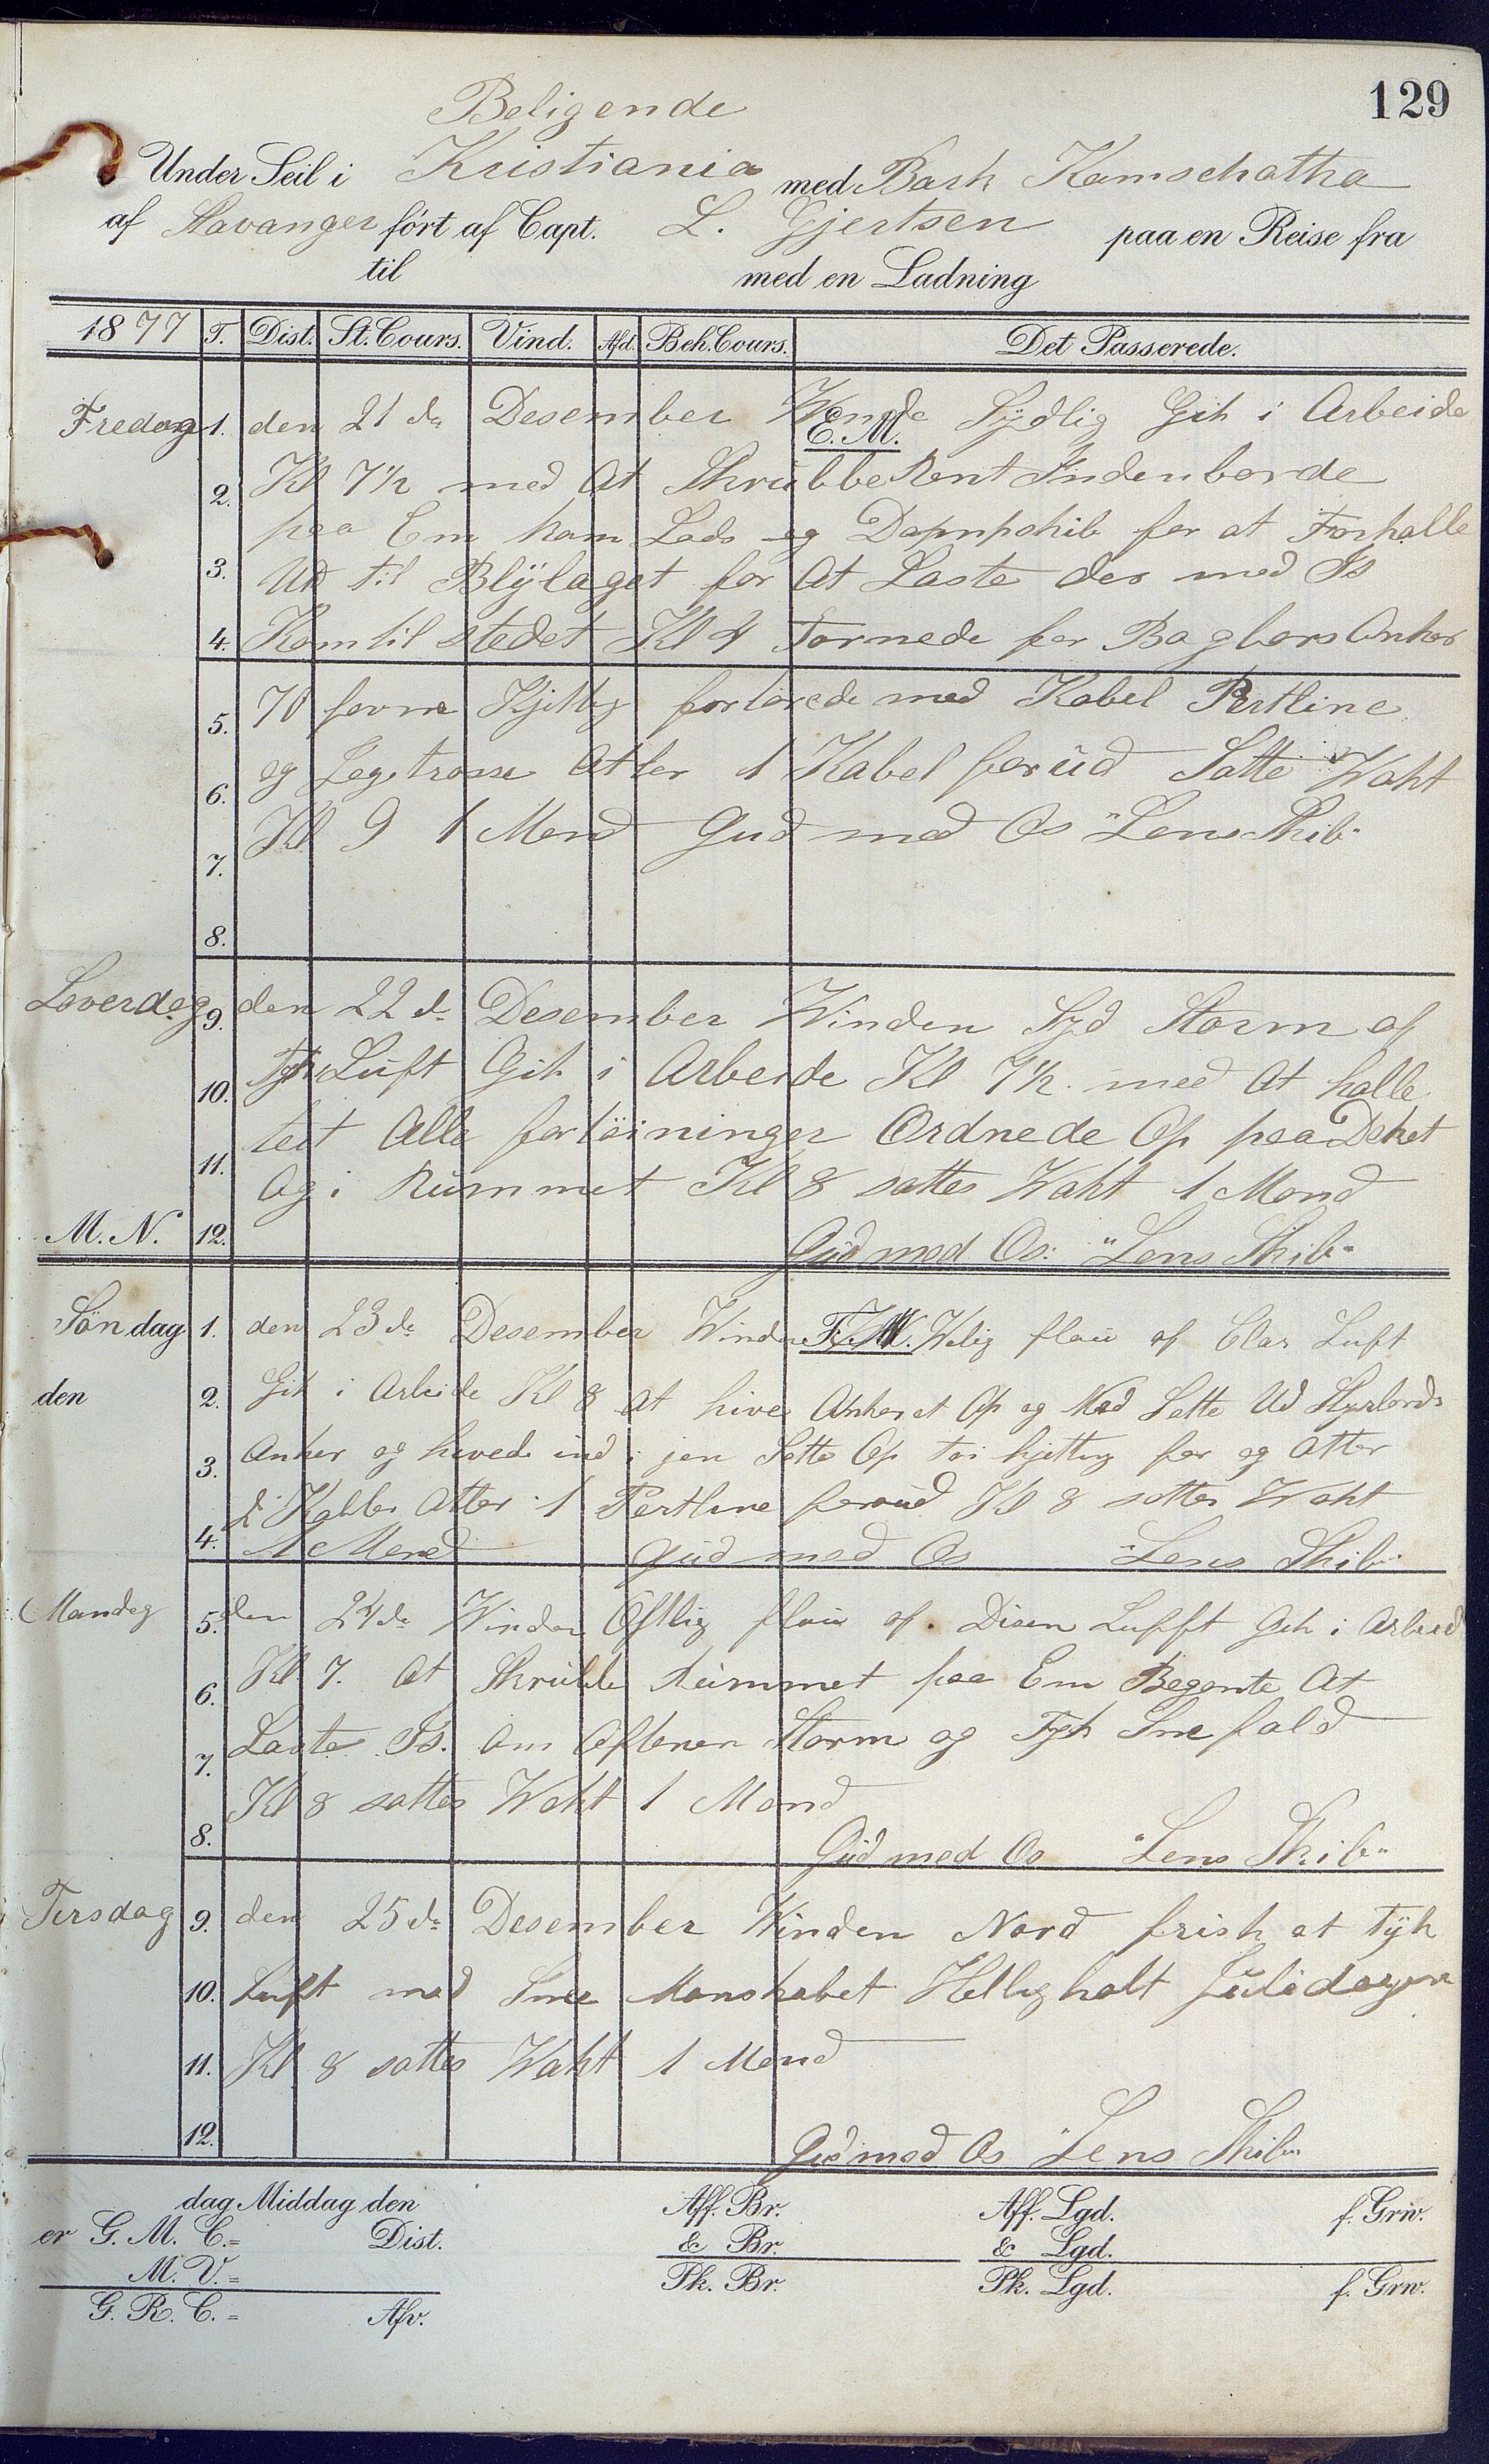 129
Beligende
Under Seil i Kristiania med Bark Kamschatka
af Stavanger fört af Capt. L. Gjertsen paa en Reise fra
til med en Ladning
1877 T. Dist. St. Cours. Vind. Afd. Beh. Cours. Det Passerede.
E. M.
Fredag 1. den 21 de Desember Winde Sydlig Gik i Arbeide
2. Kl 7½ med At Skrubbe Rent Indenborde
paa Em kom Lods og Dampskib for at Forhalle
3. Ud til Blylaget for At Laste der med Is
4. Kom til stedet Kl 4 Tornede for Bagbors Anker
5. 70 favne Kjetting fortøiede med Kabel Pertline
6. og Jagetrosse Atter 1 Kabel forud Satte Wakt
7. Kl 9 1 Mand Gud med Os "Lens Skib"
8.
Loverdag 9. den 22 de Desember Winden Syd Storm af
10. Tyk Luft Gik i Arbeide Kl 7½ med At halle
11. teit Alle fortöininger Ordnede Op paa Deket
Og i Rummet Kl 8 sattes Wakt 1 Mand
M. N. 12. Gud med Os: "Lens Skib"
F. M.
Söndag 1. den 23 de Desember Winden Welig flau af Clar Luft
den 2. Gik i Arbeide Kl 8 At hive Ankeret Op og Satte Ud Styrbords
3. Anker og hivede ind i jen Sette Op kjetting for og Atter
4. Kabler Atter 1 Pertline forud Kl 8 sattes Wakt
1 Mand Gud med Os "Lens Skib"
Mandag 5. den 24 de Winden Ostlig flau af Disen Lufft Gik i Arbeid
6. Kl 7. At Skrubbe Rummet paa Em Begente At
7. Laste Is. om Aftenen Storm og Tyk Snefald
8. Kl 8 sattes Wakt 1 Mand
Gud med Os "Lens Skib"
Tirsdag 9. den 25 de Desember Winden Nord frisk et tyk
10. Luft med Snee Manskabet Hellig halt Juledagen
11. Kl 8 sattes Wakt 1 Mand
12. Gud med Os "Lens Skib"
dag Middag den Aff. Br. Aff. Lgd. f. Grw.
er G. M. C. = Dist. & Br. & Lgd.
M. V. = Pk. Br. Pk. Lgd. f. Grw.
G. R. C. = Afv.